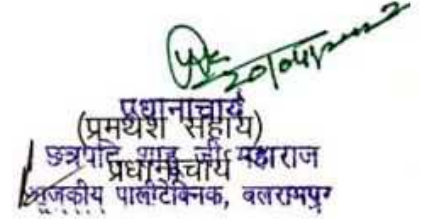 20/04/2022
प्रधानाचार्य
(प्रमथेश सहाय)
छत्रपति शाहू जी महाराज
प्रधानाचार्य
राजकीय पालीटेक्निक, बलरामपुर